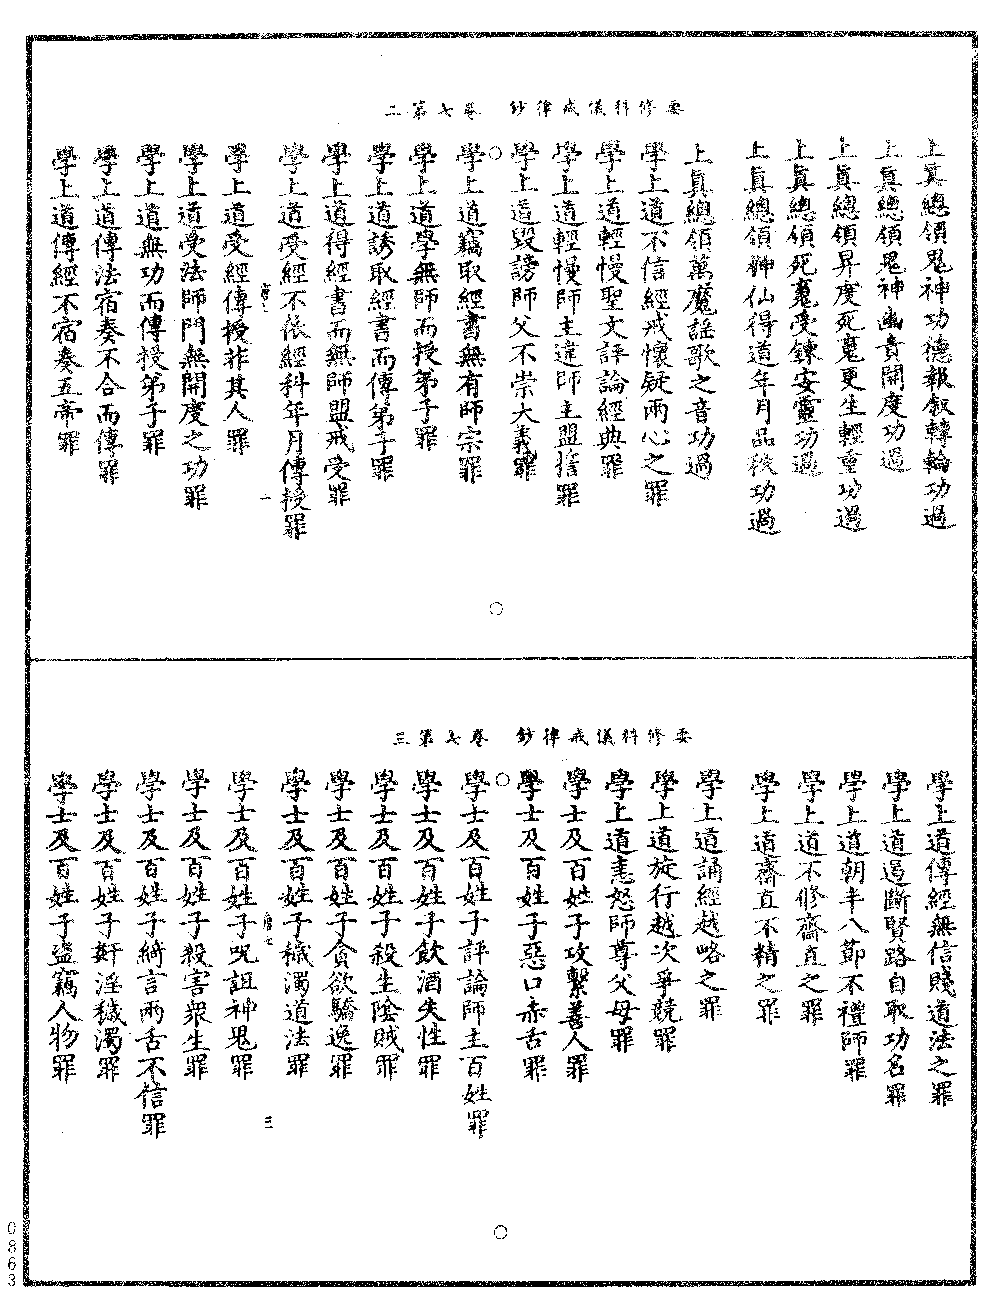 要修科儀戒律鈔　卷七第二
上真總領鬼神功德報叙轉輪功過
上真總領鬼神幽責開度功過
上真總領昇度死魂更生輕重功過
上真總領死魂受鍊安靈功過
上真總領神仙得道年月品秩功過
上真總領萬魔謡歌之音功過
學上道不信經戒懷疑兩心之罪
學上道輕慢聖文評論經典罪
學上道輕慢師主違師主盟誓罪
學上道毀謗師父不崇大義罪
○學上道竊取經書無有師宗罪
學上道學無師而授弟子罪
學上道誘取經書而傳弟子罪
學上道得經書而無師盟戒受罪
學上道受經不依經科年月傳授罪
一
學上道受經傳授非其人罪
學上道受法師門無開度之功罪
學上道無功而傳授弟子罪
學上道傳法宿奏不合而傳罪
學上道傳經不宿奏五帝罪
○
要修科儀戒律鈔　卷七第三
學上道傳經無信賤道法之罪
學上道遏斷賢路自取功名罪
學上道朝半八節不禮師罪
學上道不修齋直之罪
學上道齋直不精之罪
學上道誦經越略之罪
學上道旋行越次爭競罪
學上道恚怒師尊父母罪
學士及百姓子攻擊善人罪
學士及百姓子惡口赤舌罪
○學士及百姓子評論師主百姓罪
學士及百姓子飲酒失性罪
學士及百姓子殺生陰賊罪
學士及百姓子貪欲驕逸罪
學士及百姓子穢濁道法罪
三
學士及百姓子呪詛神鬼罪
學士及百姓子殺害眾生罪
學士及百姓子綺言兩舌不信罪
學士及百姓子姧淫穢濁罪
學士及百姓子盜竊人物罪
○
0863